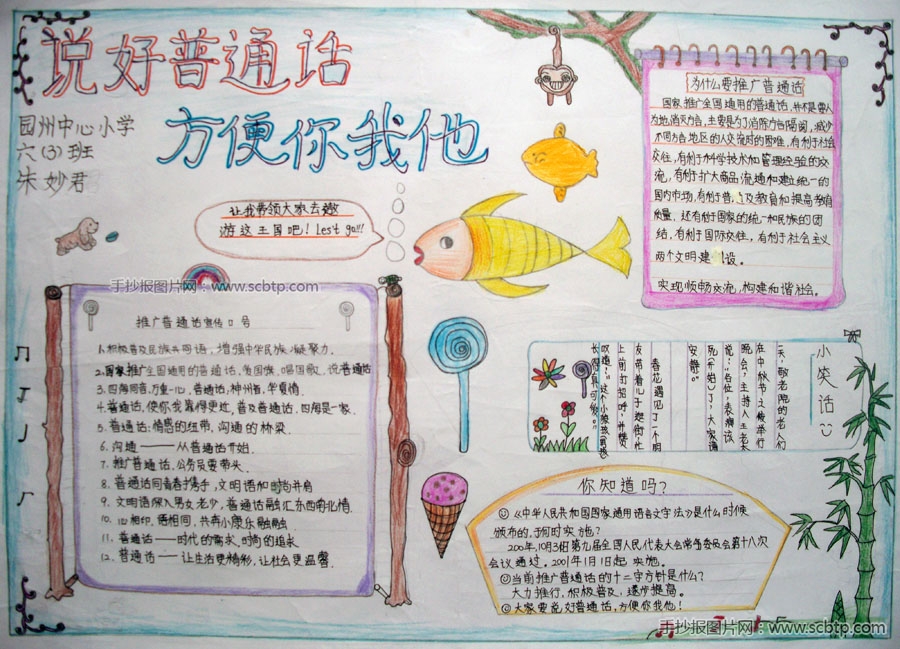 说好普通话
方便你我他
园州中心小学
六(3)班
朱妙君
让我带领大家去遨
游这王国吧！Let's go!!!
为什么要推广普通话
国家推广全国通用的普通话，并不是要人
为地消灭方言，主要是为了消除方言隔阂，减少
不同方言地区的人交流时的困难，有利于社会
交往，有利于科学技术和管理经验的交
流，有利于扩大商品流通和建立统一的
国内市场，有利于普及教育和提高教育
质量，还有利于国家的统一和民族的团
结，有利于国际交往，有利于社会主义
两个文明建设。
实现顺畅交流，构建和谐社会。
手抄报图片网：www.scbtp.com
推广普通话宣传口号
1.积极普及民族共同语，增强中华民族凝聚力。
2.国家推广全国通用的普通话，爱国旗，唱国歌，说普通话
3.四海同音，万众一心，普通话，神州音，华夏情
4.普通话，使你我靠得更近，普及普通话，四海是一家。
5.普通话：情感的纽带，沟通的桥梁
6.沟通——从普通话开始
7.推广普通话，公务员要带头
8.普通话同青春携手，文明语和时尚并肩
9.文明语深入男女老少，普通话融汇东西南北情
10.心相印，语相同，共奔小康乐融融
11.普通话——时代的需求，时尚的追求
12.普通话——让生活更精彩，让社会更温馨
小笑话
一天，敬老院的老人们
在中秋节之夜举行
晚会，主持人王老太
说："各位，表
安静。"
春花遇见了一个朋
友带着儿子逛街，忙
上前打招呼，并赞
叹道："这个小
长得真可爱。"
你知道吗？
《中华人民共和国国家通用语言文字法》是什么时候
颁布的，于何时实施？
2000年10月31日第九届全国人民代表大会常务委员会第十八次
会议通过。2001年1月1日起实施。
当前推广普通话的十二字方针是什么？
大力推行，积极普及，逐步提高。
大家要说好普通话，方便你我他！
手抄报图片网：www.scbtp.com